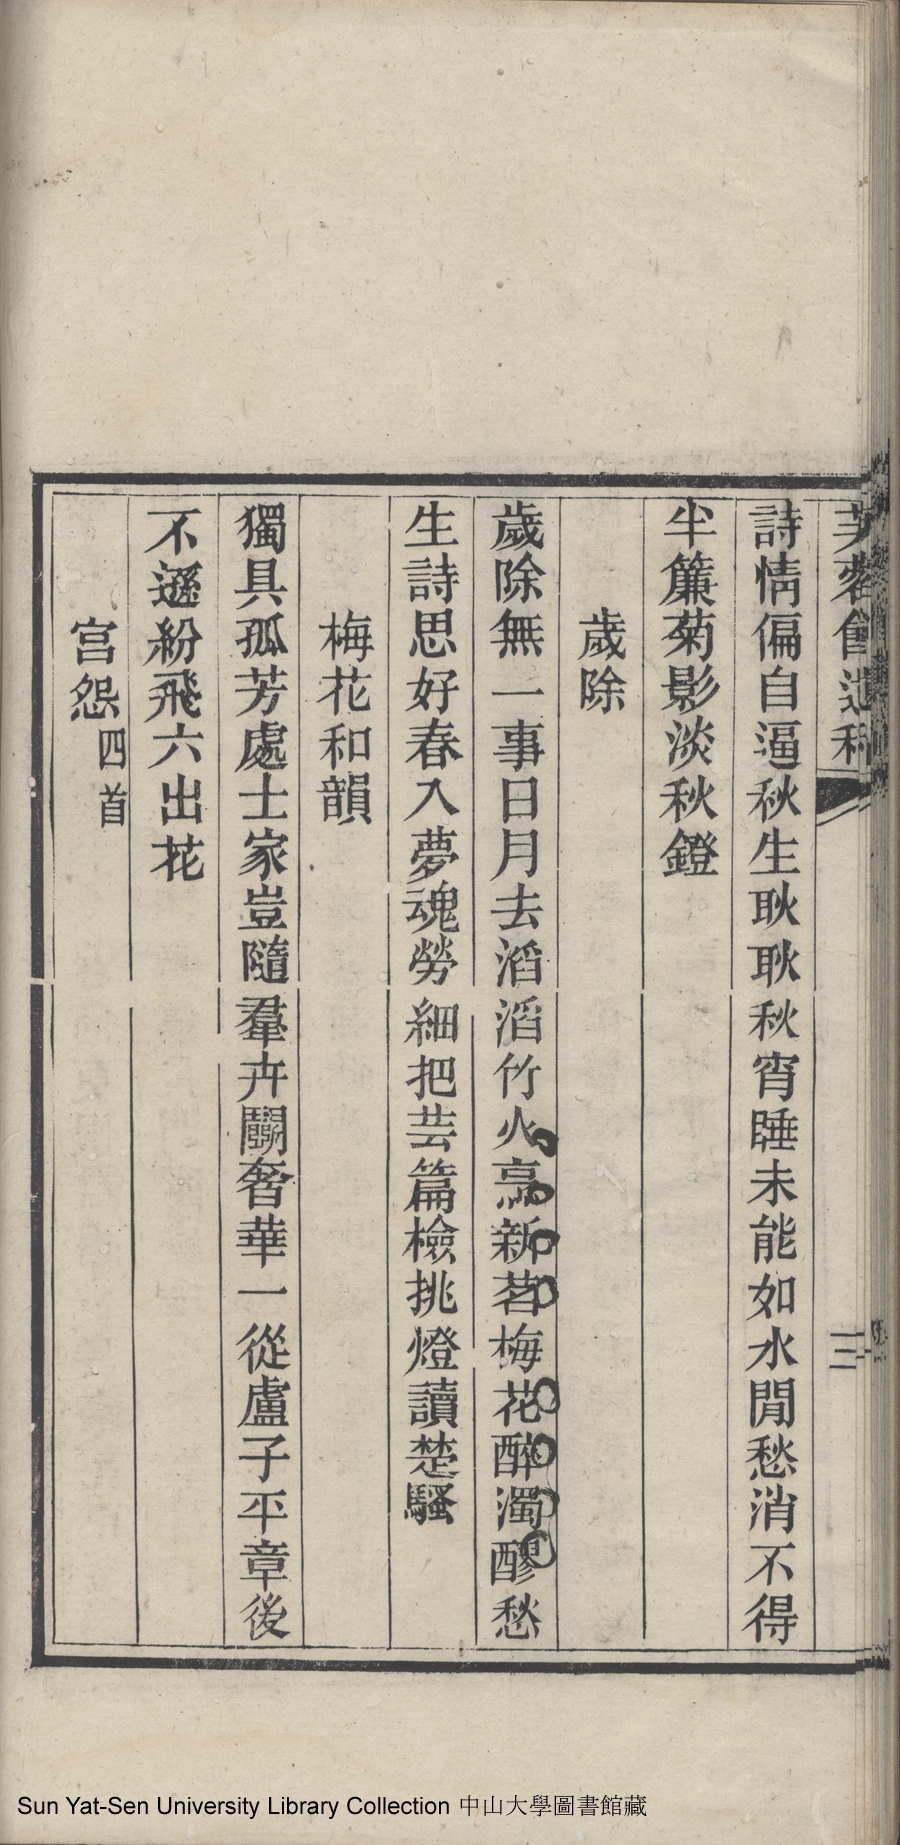 芙蓉館遺稿
二
詩情偏自逼秋生耿耿秋宵睡未能如水閒愁消不得
半簾菊影淡秋鐙
歲除
歲除無一事日月去滔滔竹火烹新茗梅花醉濁醪愁
生詩思好春入夢魂勞細把芸篇檢挑燈讀楚騷
梅花和韻
獨具孤芳處士家豈隨羣卉鬭奢華一從盧子平章後
不遜紛飛六出花
宮怨四首
Sun Yat-Sen University Library Collection 中山大學圖書館藏